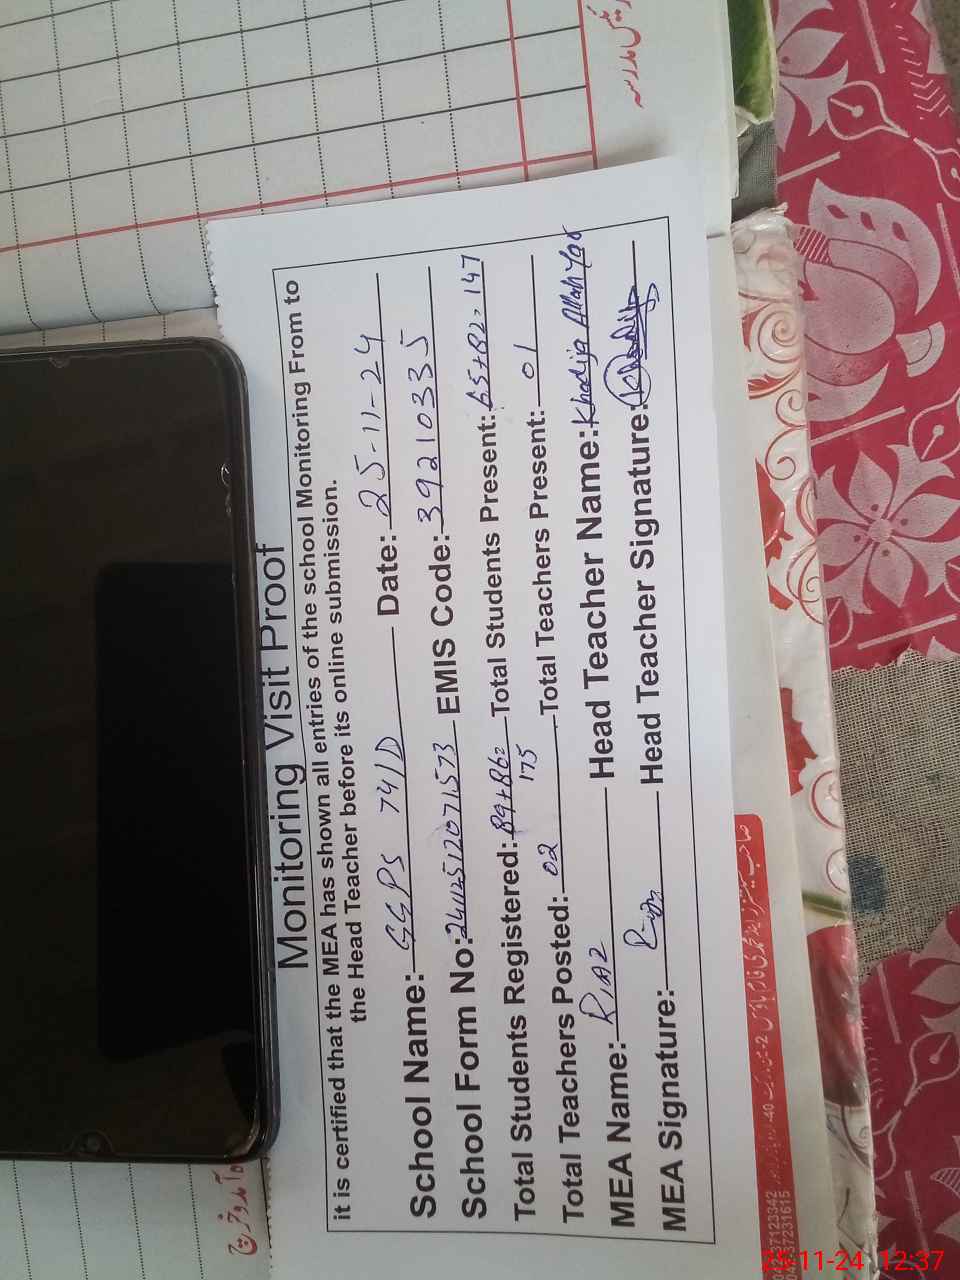 Monitoring Visit Proof
it is certified that the MEA has shown all entries of the school Monitoring From to
the Head Teacher before its online submission.
School Name: GGPS 741D Date: 25-11-24
School Form No: EMIS Code: 39210335
Total Students Registered: 89+86= 175 Total Students Present: 65+82=147
Total Teachers Posted: 02 Total Teachers Present: 01
MEA Name: RIAZ Head Teacher Name: Khadija Allah Yar
MEA Signature: Riaz Head Teacher Signature:
37231615
25-11-24 12:37